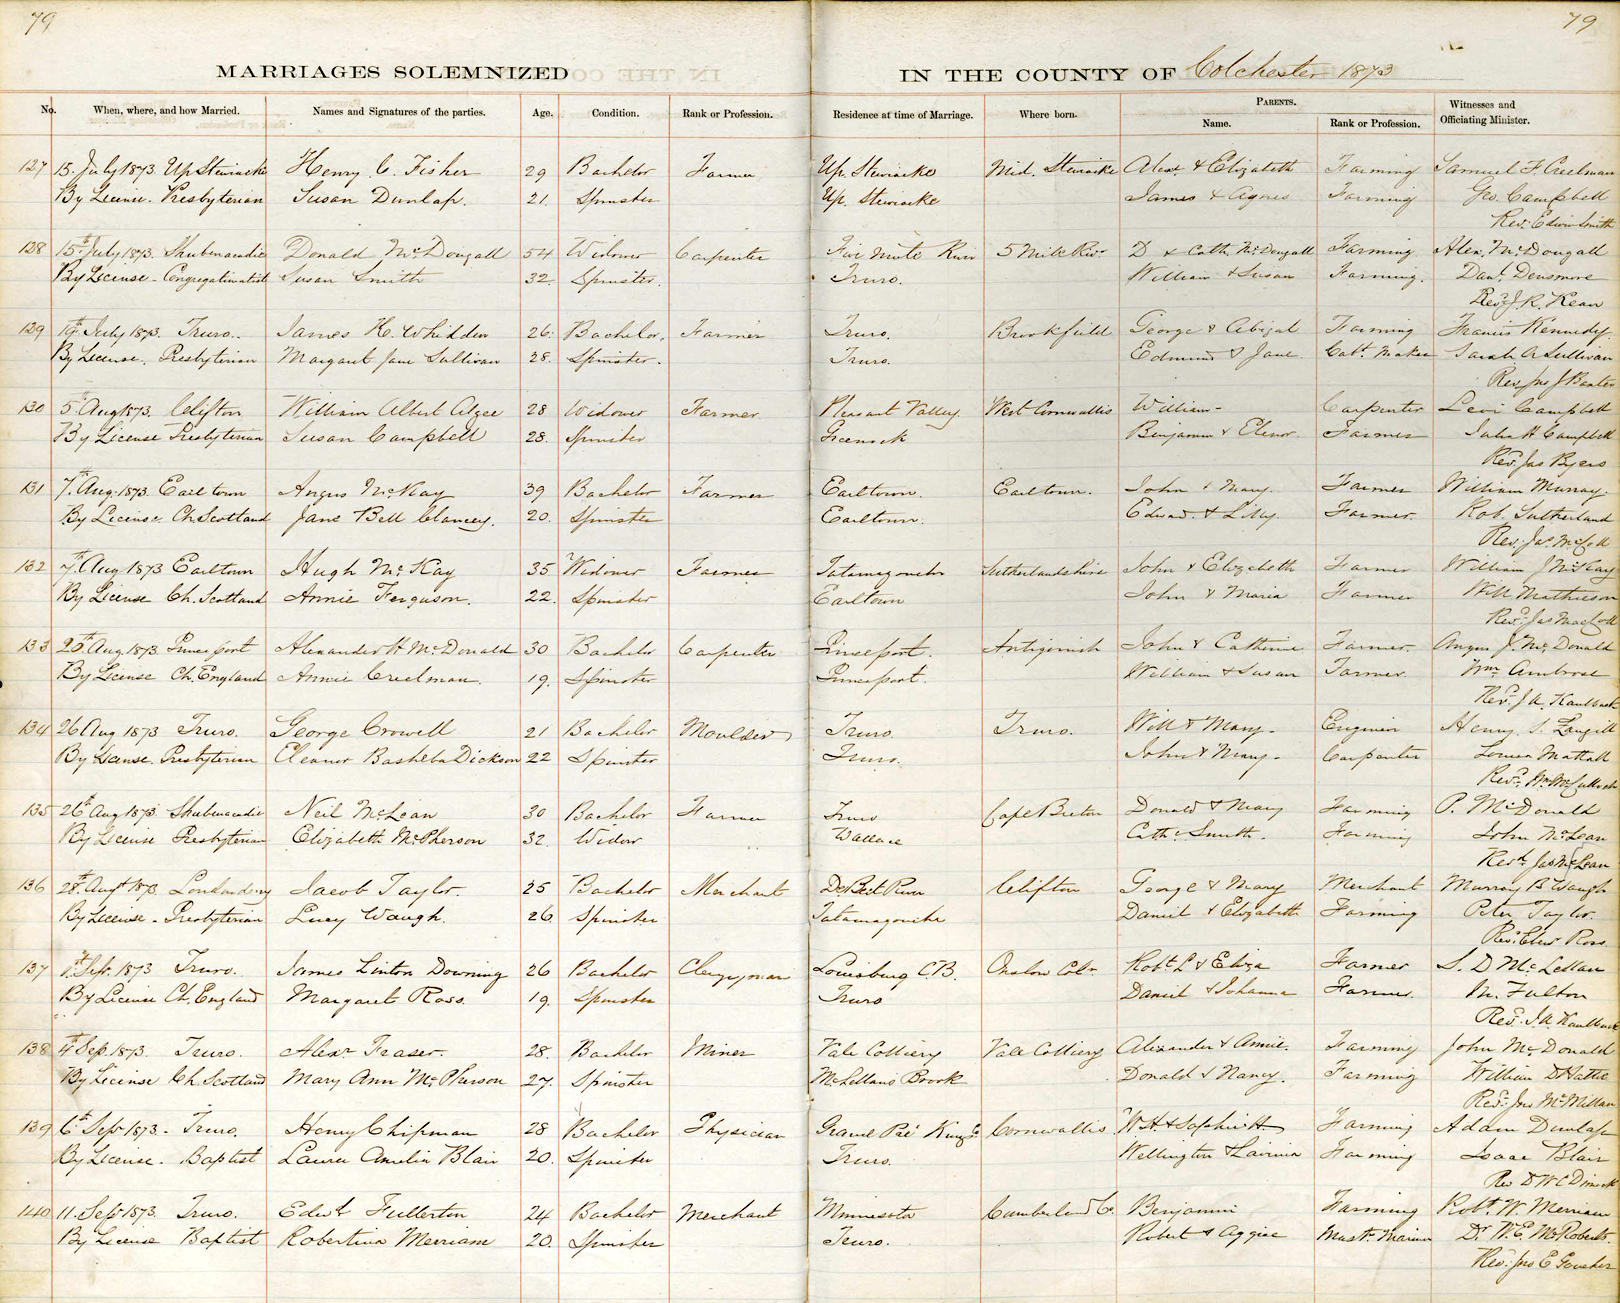 79
79
MARRIAGES SOLEMNIZED
IN THE COUNTY OF Colchester 1873
No. When, where, and how Married. Names and Signatures of the parties. Age. Condition. Rank or Profession. Residence at time of Marriage. Where born. PARENTS. Name. Rank or Profession. Witnesses and Officiating Minister.
127 15. July 1873. Up Stewiacke Henry C. Fisher 29 Bachelor Farmer Up. Stewiacke Mid. Stewiacke Alex & Elizabeth Farming Samuel F. Creelman
By License. Presbyterian Susan Dunlap. 21. Spinster Up. Stewiacke James & Agnes Farming Geo. Campbell
Rev. Edwin Smith
128 15th July 1873. Shubenacadie Donald McDougall 54 Widower Carpenter Five Mile River 5 Mile Rivr D & Cath McDougall Farming Alex. McDougall
By License. Congregationalist Susan Smith 32. Spinster. Truro. William & Susan Farming. Danl Densmore
Revd J. K. Kean
129 19th July 1873. Truro. James H. Whidden 26. Bachelor. Farmer Truro. Brookfield George & Abigal Farming Francis Kennedy
By License. Presbyterian Margaret Jane Sullivan 28. Spinster. Truro. Edmund & Jane Cabt Maker Sarah A Sullivan
Rev. Jno J Baxter
130 5th Aug 1873. Clifton William Albert 28 Widower Farmer Pleasant Valley West Cornwallis William - Carpenter Levi Campbell
By License Presbyterian Susan Campbell 28. Spinster Greenock Benjamin & Elenor. Farmer Campbell
Rev. Jas Byers
131 7th Aug. 1873. Earltown Angus McKay 39 Bachelor Farmer Earltown. Earltown. John & Mary. Farmer William Murray.
By License. Ch. Scotland Jane Bell Clancey. 20. Spinster Earltown. Edwad. & Lilly Farmer. Rob. Sutherland
Rev. Jas McColl
132 7th Aug 1873 Earltown Hugh McKay 35 Widower Farmer Tatamagouche Sutherlandshire John & Elizabeth Farmer William J McKay
By License Ch. Scotland Annie Ferguson. 22. Spinster Earltown John & Maria Farmer Will Mathieson
Revd Jas MacColl
133 20th Aug 1873 Princeport Alexander H McDonald 30 Bachelor Carpenter Princeport. Antigonish John & Catherine Farmer. Angus J. McDonald
By License Ch. England Annie Creelman. 19. Spinster Princeport. William & Susan Farmer. Wm Ambrose
Revd J. A. Kaulback
134 26 Aug 1873 Truro. George Crowell 21 Bachelor Moulder Truro. Truro. Will & Mary. Engineer Henry S. Langill
By License. Presbyterian Eleanor Basheba Dickson 22 Spinster Truro. John & Mary. Carpenter Mattall
Revd Wm McCulloch
135 26th Aug 1873 Shubenacadie Neil McLean 30 Bachelor Farmer Truro Cape Breton Donald & Mary Farming P. McDonald
By License Presbyterian Elizabeth McPherson 32. Widow Wallace Cathe Smith. Farming John McLean
Revd. Jas McLean
136 28th Augt 1873 Londonderry Jacob Taylor. 25 Bachelor Merchant DeBert River Clifton George & Mary Merchant Murray B Waugh
By License. Presbyterian Lucy Waugh. 26 Spinster Tatamagouche Daniel & Elizabeth Farming Peter Taylor.
Revd Ebenr Ross
137 1st Sep. 1873 Truro. James Linton Downing 26 Bachelor Clergyman Louisburg C.B. Onslow Colr Robt L & Eliza Farmer S. D McLellan
By License Ch. England Margaret Ross. 19. Spinster Truro Daniel & Johanna Farmer. M. Fulton
Revd. J. A. Kaulback
138 4th Sep. 1873. Truro. Alexr Fraser. 28. Bachelor Miner Vale Colliery Vale Colliery Alexander & Annie. Farming John McDonald
By License Ch. Scotland Mary Ann McPherson 27. Spinster McLellans Brook Donald & Nancy. Farming William D Hattie
Revd. Jno McMillan
139 6th Sepr 1873. Truro. Henry Chipman 28 Bachelor Physician Grand Pré Kings Co. Cornwallis W H & Sophia H Farming Adam Dunlap
By License. Baptist Laura Amelia Blair 20. Spinster Truro. Wellington & Lavinia Farming Isaac Blair
Rev D W C Dimock
140 11. Sepr 1873. Truro. Edwd Fullerton 24 Bachelor Merchant Minnesota Cumberland Co. Benjamin Farming Robt. W. Merriam
By License Baptist Robertina Merriam 20. Spinster Truro. Robert & Aggie Mastr Mariner Dr. W. E. McRoberts.
Rev. Jno E Goucher